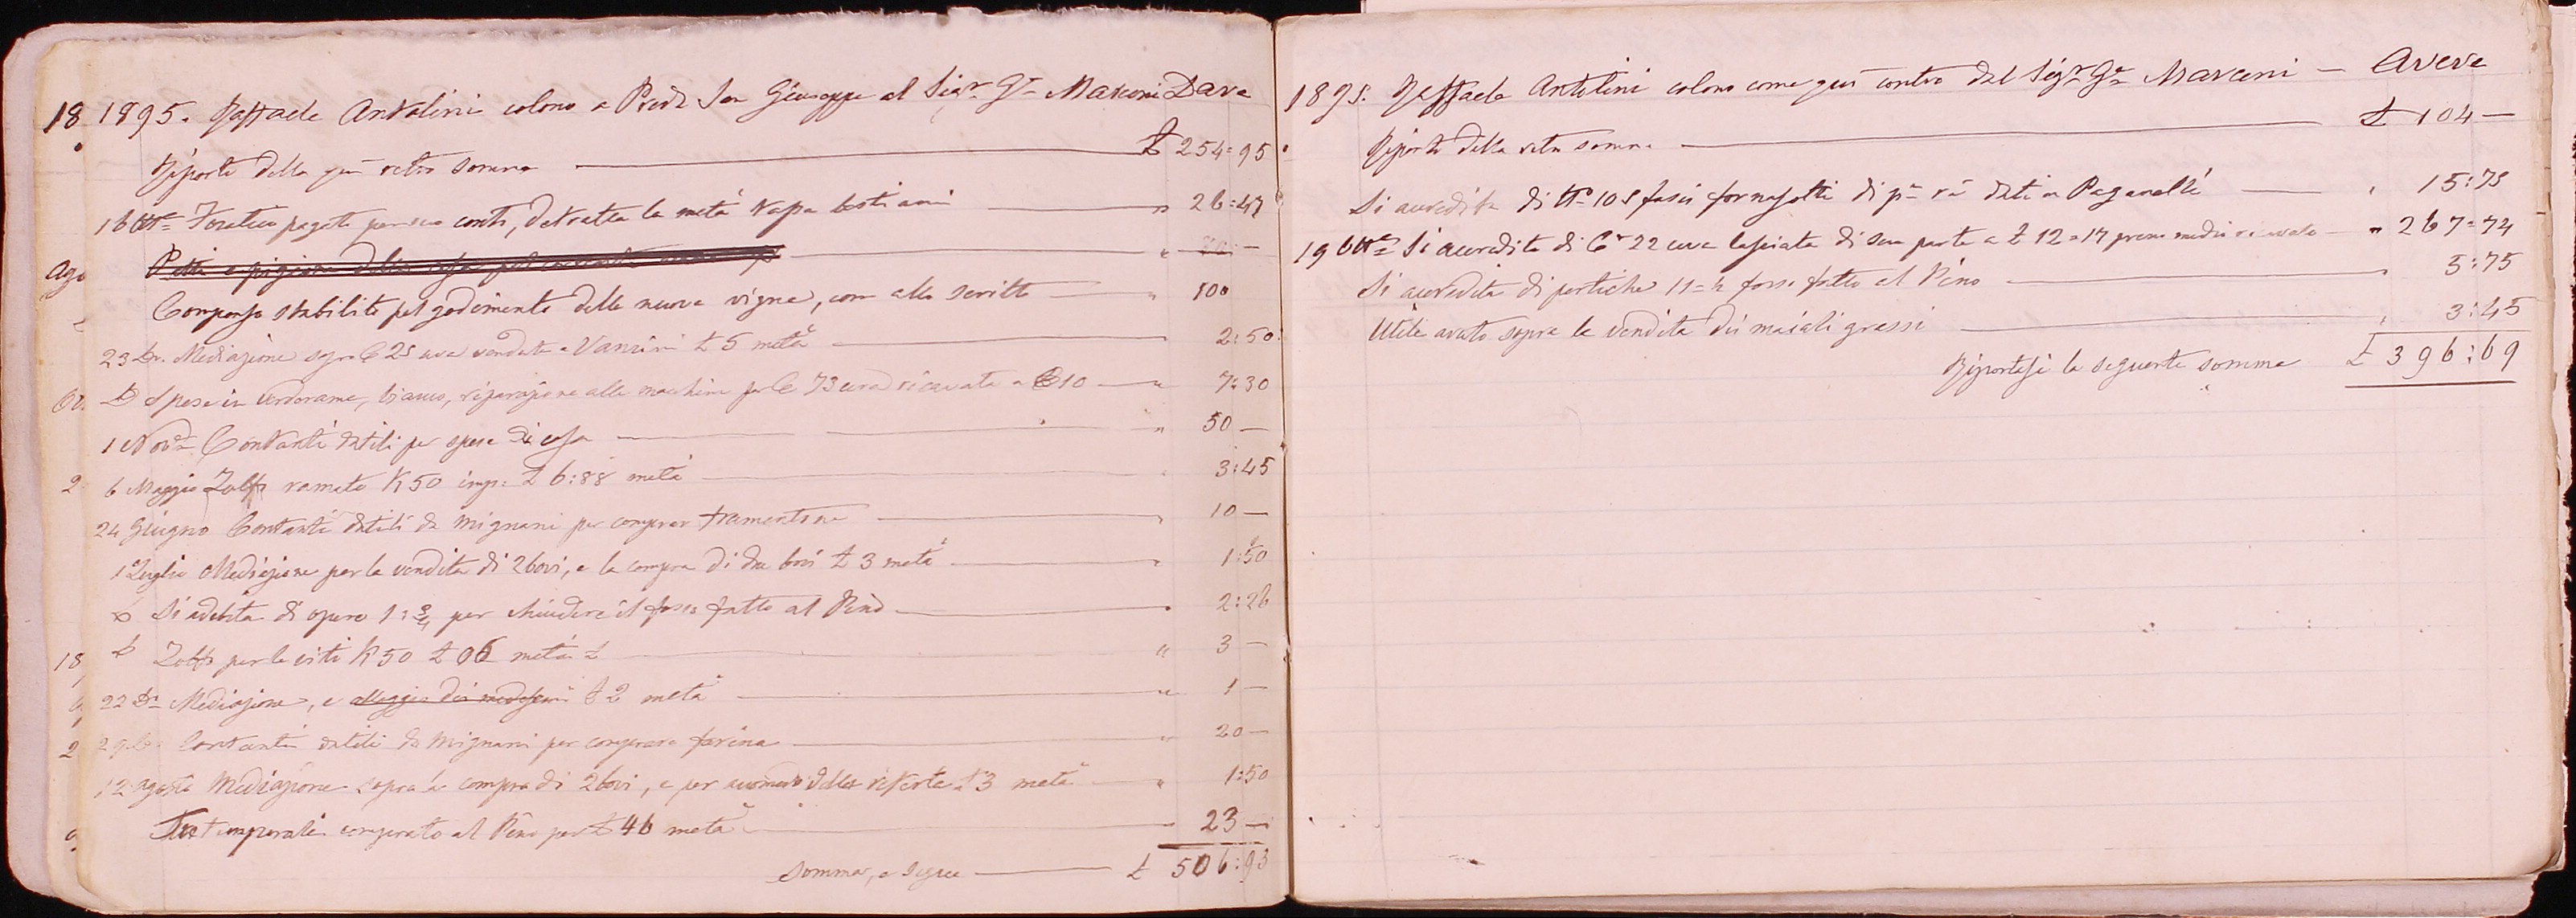 18 1895. Raffaele Antolini colono a Predi San Giuseppe al Sigr. Ge Marconi Dare
Riporto della qui retro somma £ 254=95
16 Ott.e Focatico pagato per suo conto, detratta la metà tassa bestiami " 26=47
Ago
Compenso stabilito pel godimento delle nuove vigne, come allo scritto " 100
23 Do. Mediazione sopra C 25 uva venduta a Vanzini £ 5 metà 2:50
D Spese in verderame, riparazione alle macchine per C 73 uva ricavata a 10 " 7:30
1 Nov.e Contanti datili per spese di casa " 50 —
2 6 Maggio Zolfo ramato K 50 imp: £ 6:88 metà 3:45
24 Giugno Contanti datili da Mignani per comprar framentone " 10 —
1 Luglio Mediazione per la vendita di 2 bovi, e la compra di due bovi £ 3 metà 1:50
D Si adebita di opere 1:3/4 per chiudere il fosso fatto al Pino 2:26
18 D Zolfo per le viti K 50 £ 06 metà £ " 3 —
22 Do Mediazione, e alloggio dei medesimi £ 2 metà " 1 —
2 29 Do. Contanti datili da Mignani per comperare farina " 20 —
12 Agosto Mediazione sopra la compra di 2 bovi, e per £ 3 metà " 1:50
comperato al Pino per £ 46 metà 23 —
Somma, e segue £ 506:93
1895. Raffaele Antolini colono come qui contro dal Sigr. Ge Marconi — Avere
Riporto della retro somma £ 104 —
Si accredita di No 105 fassi fornasotti di pa ra dati a Paganelli " 15:75
19 Ott.e Si accredita di C 22 uva lasciata di sua parte a £ 12=17 prezzo medio ricavato — " 267=74
Si accredita di pertiche 11=½ fosso fatto al Pino " 5:75
Utile avuto sopra la vendita dei maiali grassi " 3:45
Riportasi la seguente somma £ 396:69